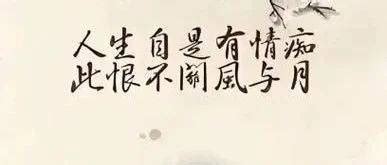 人生自是有情痴
此恨不關風与月